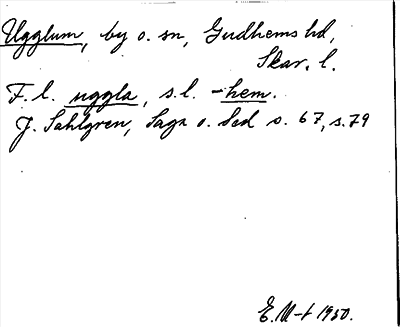 Ugglum, by o. sn, Gudhems hd,
Skar. l.
F. l. uggla, s. l. -hem.
J. Sahlgren, Saga o. Sed s. 67, s. 79
E. M-t 1950.